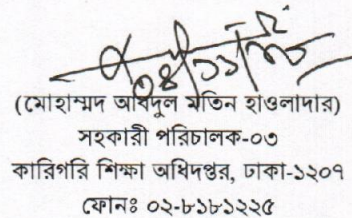 ০৪/১১/১৮
(মোহাম্মদ আবদুল মতিন হাওলাদার)
সহকারী পরিচালক-০৩
কারিগরি শিক্ষা অধিদপ্তর, ঢাকা-১২০৭
ফোনঃ ০২-৮১৮১২২৫